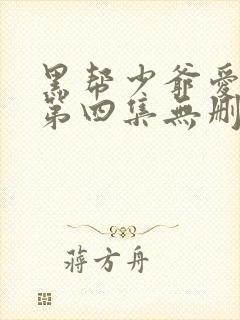 黑帮少爷爱
第四集無删
蒋方舟